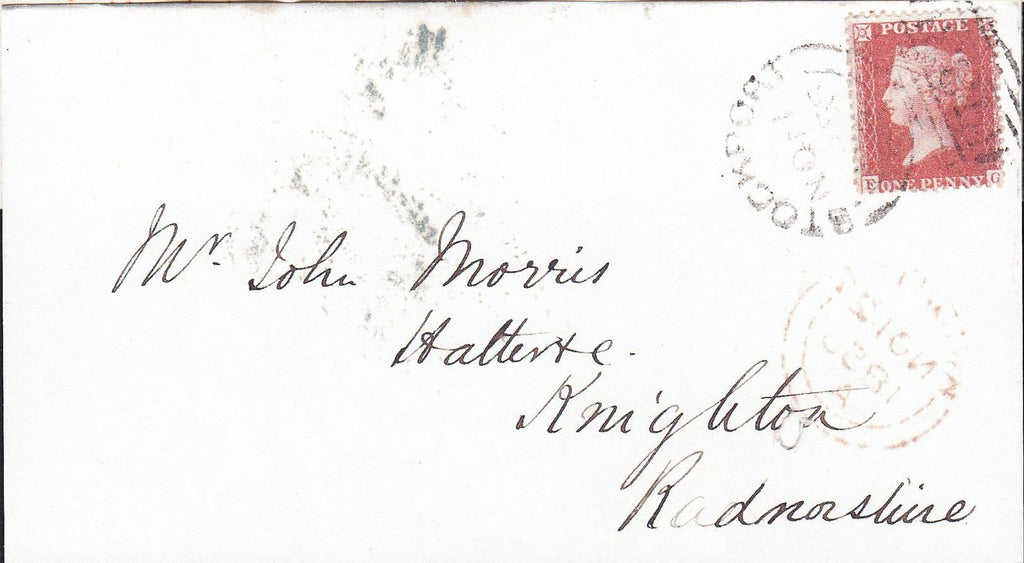 POSTAGE
E ONE PENNY G
STOCKPORT
Mr. John Morris
Knighton
Radnorshire